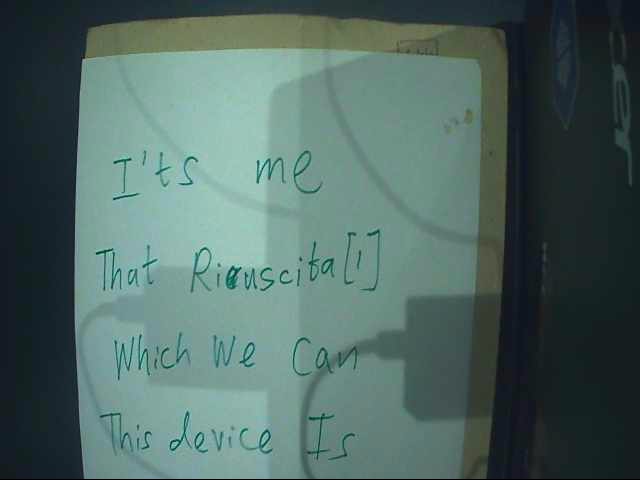 I'ts me
That Ricuscita[1]
Which We Can
This device Is
cer